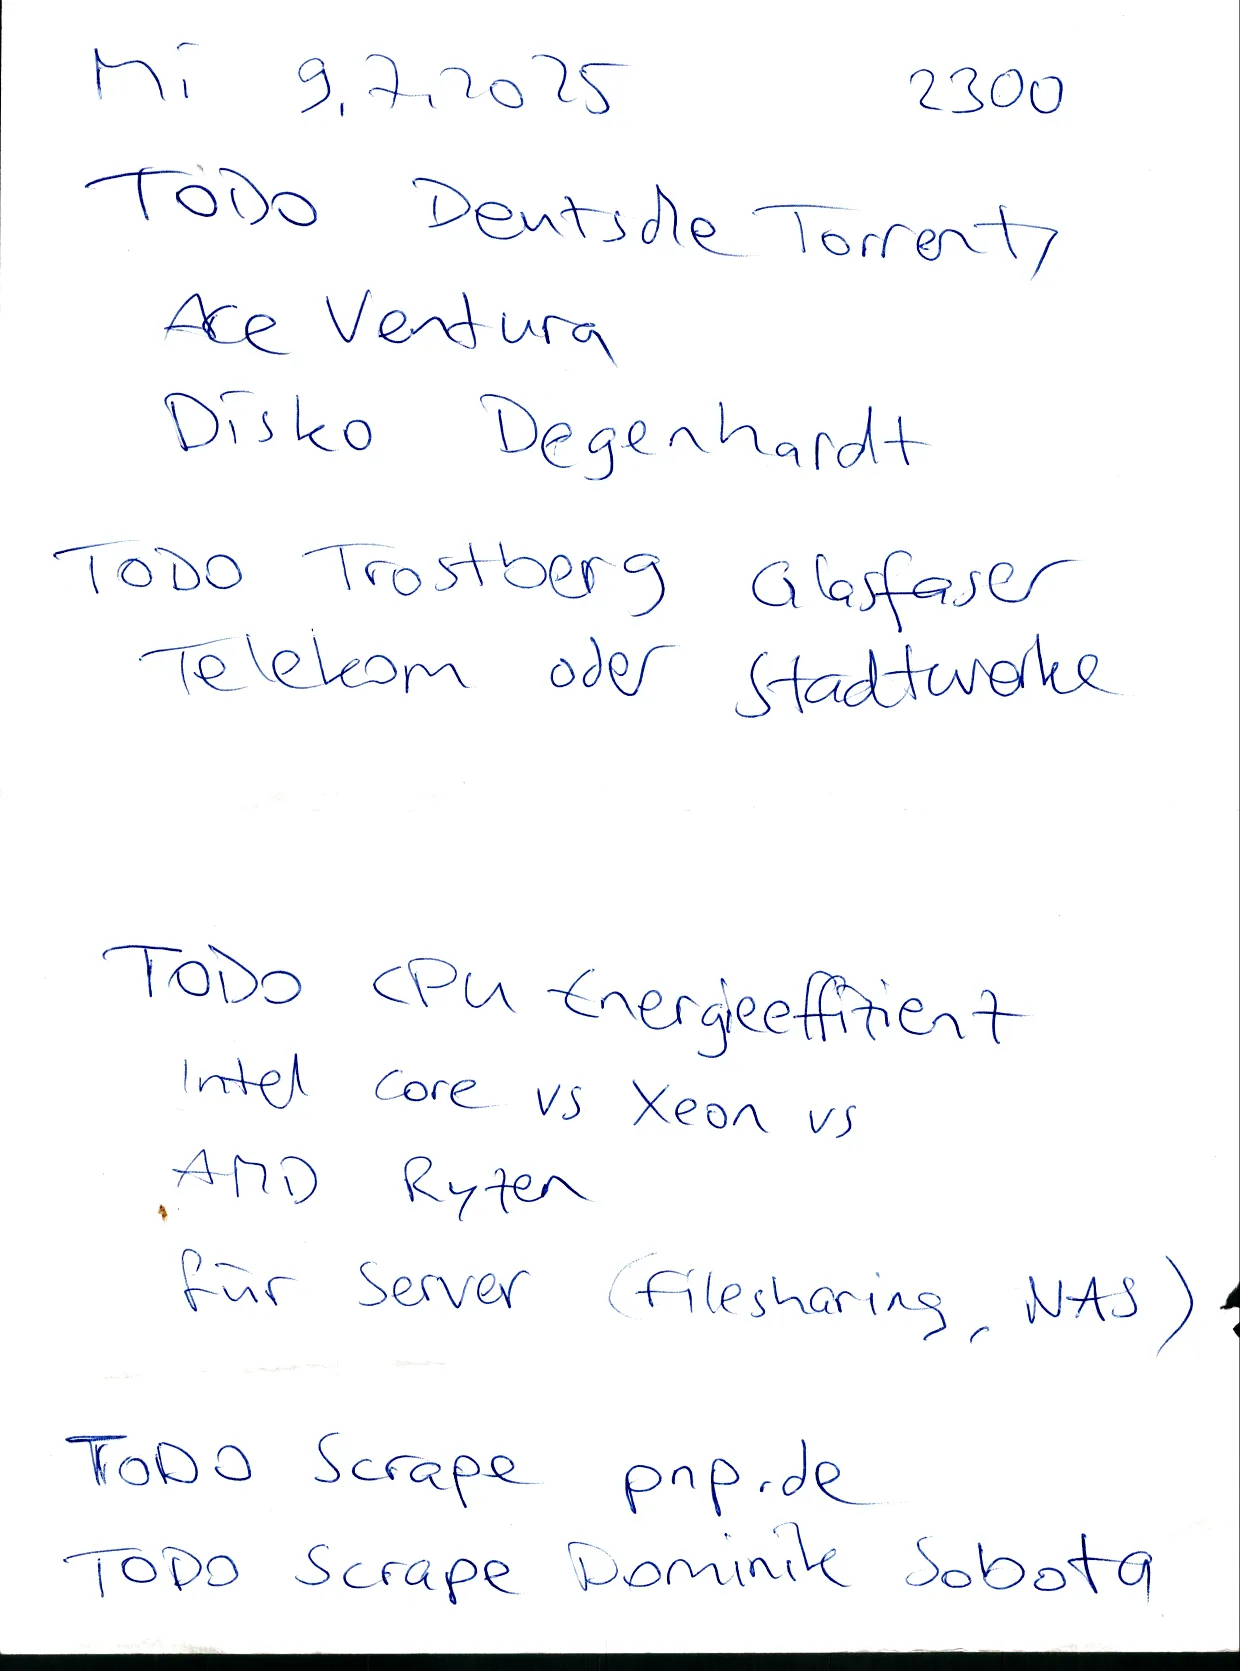 Mi 9.7.2025 2300
TODO Deutsche Torrents
Ace Ventura
Disko Degenhardt
TODO Trostberg Glasfaser
Telekom oder Stadtwerke
TODO CPU Energieeffizient
Intel Core vs Xeon vs
AMD Ryzen
für Server (Filesharing, NAS)
TODO Scrape pnp.de
TODO Scrape Dominik Sobota